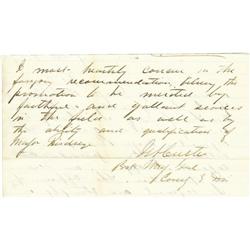 I most heartily concur in the
foregoing recommendation, believing the
promotion to be merited by
faithful and gallant services
in the field as well as by
the ability and qualifications of
Major
G A Custer
Bvt Maj Genl
Comdg 3